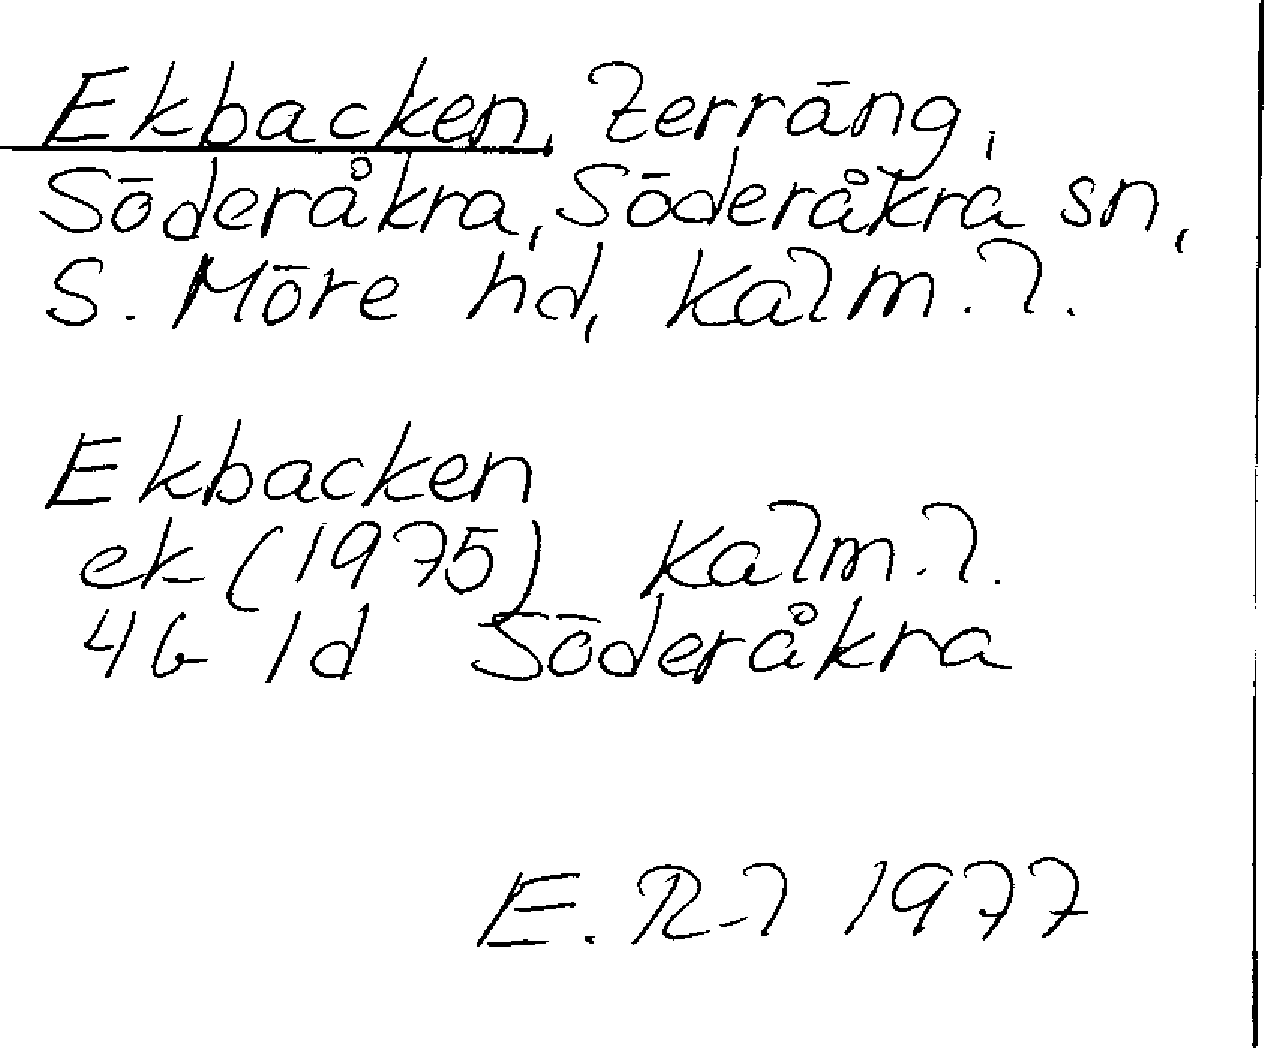 Ekbacken, terräng,
Söderåkra, Söderåkra sn,
S. Möre hd, Kalm. l.
Ekbacken
ek (1975) Kalm. l.
4G 1d Söderåkra
E. R-l 1977